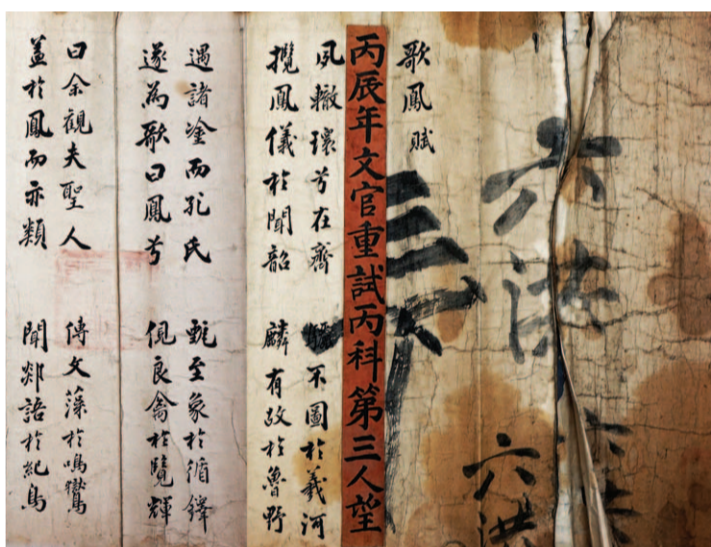 六洪
三
歌鳳賦
丙辰年文官重試丙科第三人望
夙轍環兮在齊 不圖於義河
攬鳳儀於聞韶 麟有於魯野
遇諸塗而孔氏 甄至象於循鐸
遂為歌曰鳳兮 俔良禽於覽輝
曰余觀夫聖人 傳文藻於鳴鸞
蓋於鳳而亦類 聞郯語於紀鳥